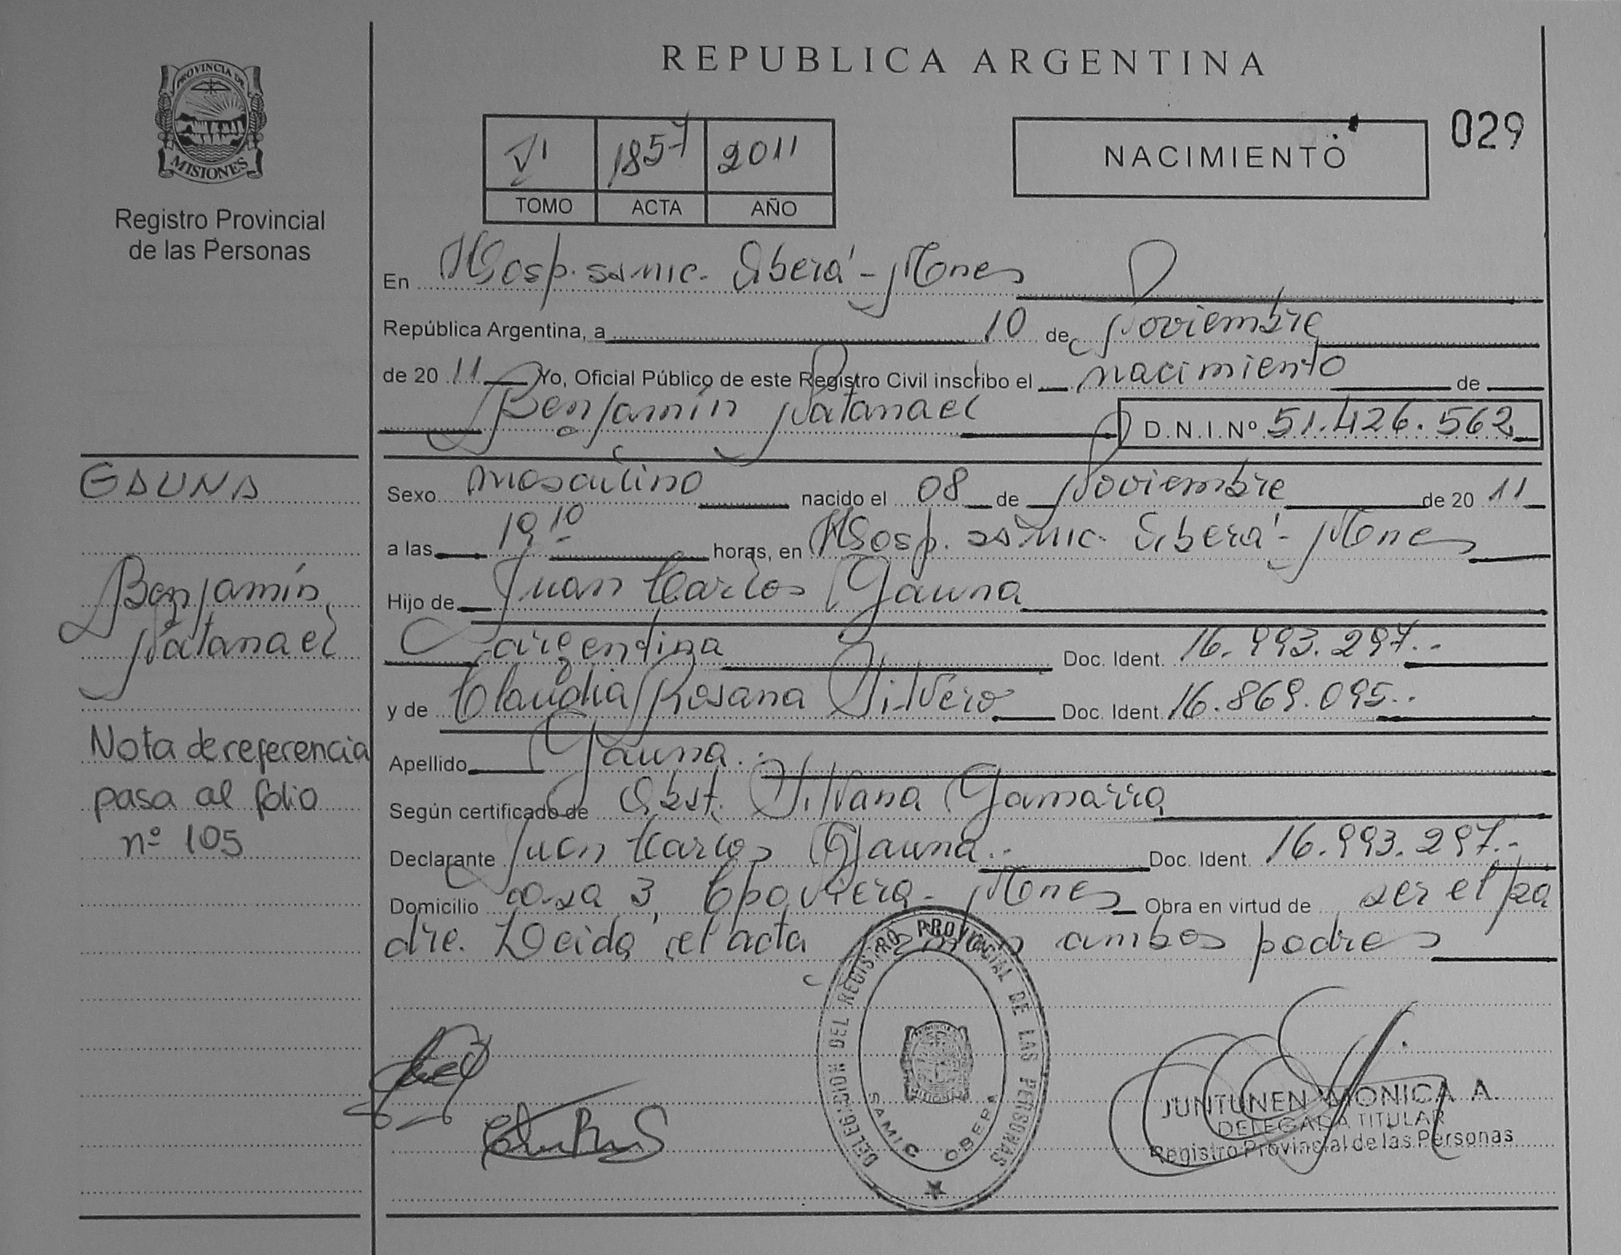 PROVINCIA DE
MISIONES
Registro Provincial
de las Personas
REPUBLICA ARGENTINA
VI 1857 2011
TOMO ACTA AÑO
NACIMIENTO
029
En Hosp. samic. Oberá - Mnes
República Argentina, a 10 de Noviembre
de 20 11 Yo, Oficial Público de este Registro Civil inscribo el nacimiento de
Benjamín Natanael D.N.I.Nº 51.426.562
Sexo masculino nacido el 08 de Noviembre de 20 11
a las 19 10 horas, en Hosp. samic. Oberá - Mnes
Hijo de Juan Carlos Gauna
argentina Doc. Ident. 16.993.297.-
y de Claudia Rosana Silvero Doc. Ident. 16.869.095.-
Apellido Gauna.-
Según certificado de Obst. Silvana Gamarra
Declarante Juan Carlos Gauna.- Doc. Ident. 16.993.297.-
Domicilio casa 3, Mnes Obra en virtud de ser el pa
dre. Leida el acta ambos padres
GAUNA
Benjamín
Natanael
Nota de referencia
pasa al folio
nº 105
DELEGACION DEL REGISTRO PROVINCIAL DE LAS PERSONAS
SAMIC OBERA
JUNTUNEN MONICA A.
DELEGADA TITULAR
Registro Provincial de las Personas